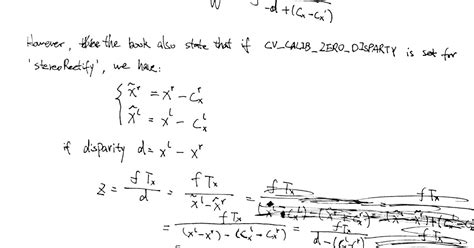 W -d+(Cx-Cx')
However, the book also state that if CV_CALIB_ZERO_DISPARTY is set for
'stereoRectify', we have:
{ x̃^r = x^r - C_x^r
x̃^l = x^l - C_x^l
if disparity d = x^l - x^r
Z = f Tx / d = f Tx / (x̃^l - x̃^r) = f Tx
= f Tx / ((x^l - x^r) - (C_x^l - C_x^r)) = f Tx / (d - (C_x^l - C_x^r))